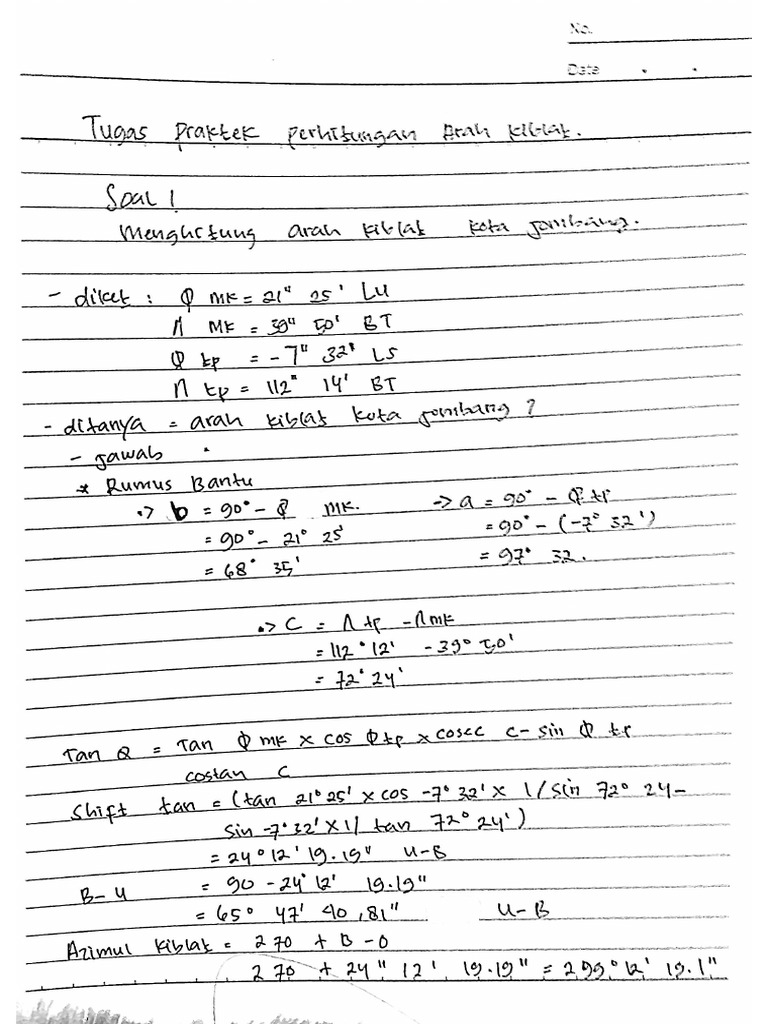 No.
Date
Tugas Praktek perhitungan Arah kiblat.
Soal 1
Menghitung arah kiblat kota Jombang.
- diket : φ mk = 21" 25' LU
Λ MK = 39" 50' BT
φ tp = -7" 32' LS
Λ tp = 112" 14' BT
- ditanya = arah kiblat kota Jombang ?
- jawab :
* Rumus Bantu
-> b = 90° - φ mk. -> a = 90° - φ tp
= 90° - 21° 25' = 90° - (-7° 32')
= 68° 35' = 97° 32.
-> C = Λ tp - Λ mk
= 112° 12' - 39° 50'
= 72° 24'
Tan Q = Tan φ mk x cos φ tp x cosec c - sin φ tp
costan c
Shift tan = (tan 21° 25' x cos -7° 32' x 1/sin 72° 24 -
sin -7° 32' x 1/ tan 72° 24')
= 24° 12' 19.19" U-B
B-U = 90 - 24° 12' 19.19"
= 65° 47' 40,81" U-B
Azimul kiblat = 270 + B-U
270 + 24" 12' 19.19" = 299° 12' 19.1"